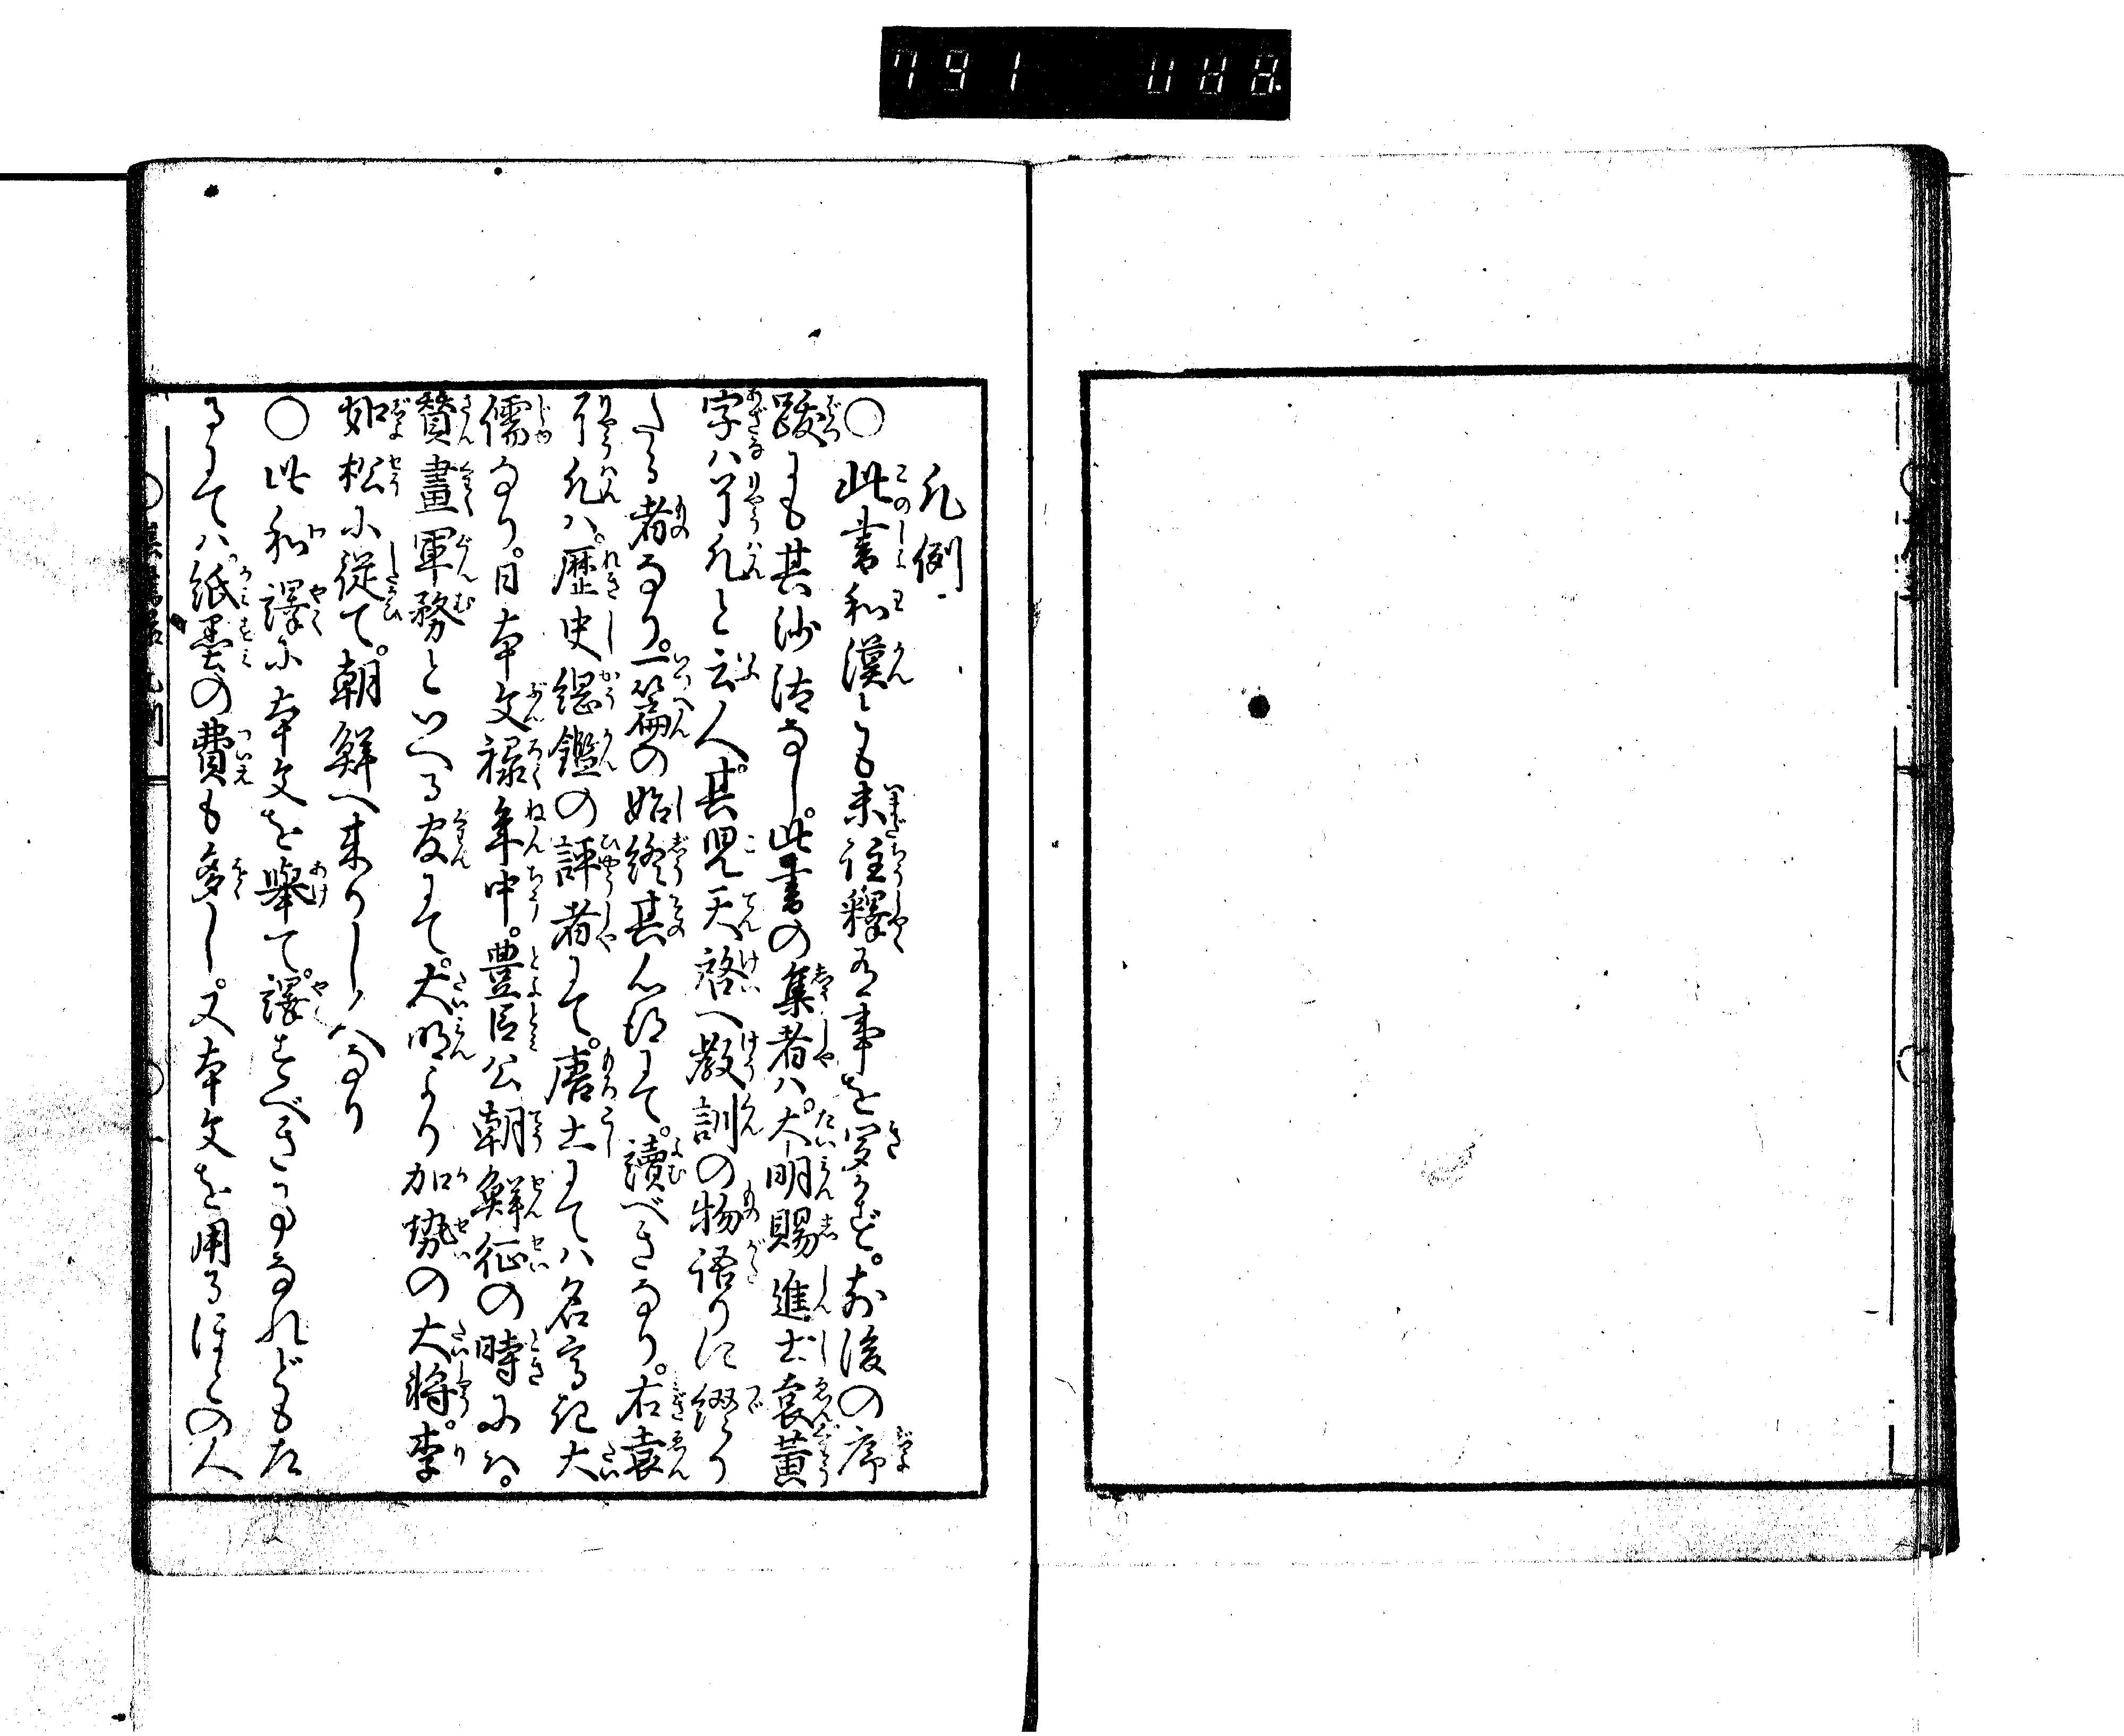 凡例
○此書和漢とも未註釋有事を聞かず。前後の序
跋にも其沙汰なし。此書の集者ハ。大明賜進士袁黃
字ハ了凡と云人。其児天啓へ教訓の物語りに綴り
たる者なり。一篇の始終其心得にて。讀べきなり。右袁
了凡ハ。歴史綱鑑の評者にて。唐土にてハ名高き大
儒なり。日本文禄年中。豊臣公朝鮮征の時にハ。
賛畫軍務といへる官にて。大明より加勢の大将。李
如松に従て。朝鮮へ来りし人なり
○此和譯に本文を舉て。譯すべきことなれども左
るにてハ。紙墨の費も多し。又本文を用るほどの人